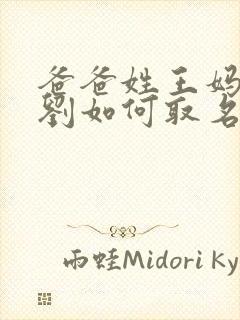 爸爸姓王妈
劉如何取名
雨蛙Midori Ky